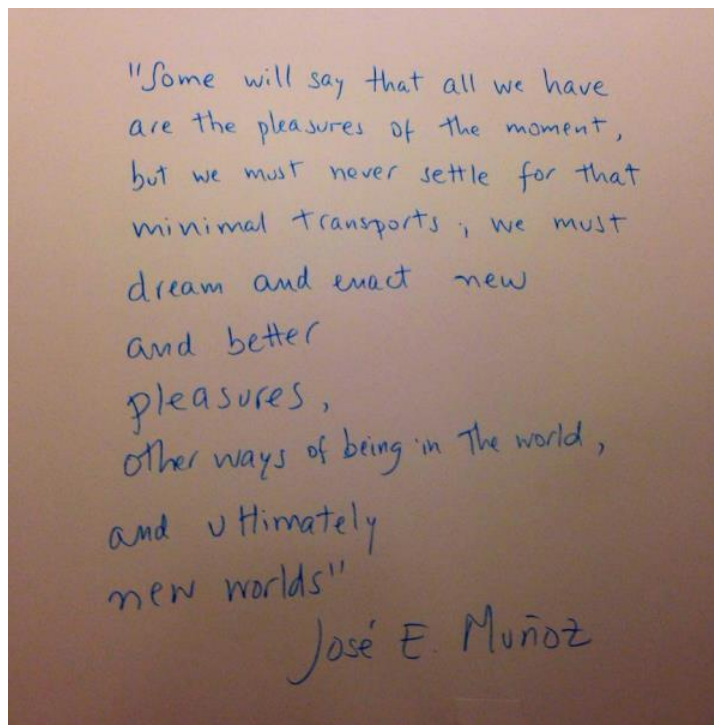 "Some will say that all we have
are the pleasures of the moment,
but we must never settle for that
minimal transports; we must
dream and enact new
and better
pleasures,
other ways of being in the world,
and ultimately
new worlds"
José E. Muñoz